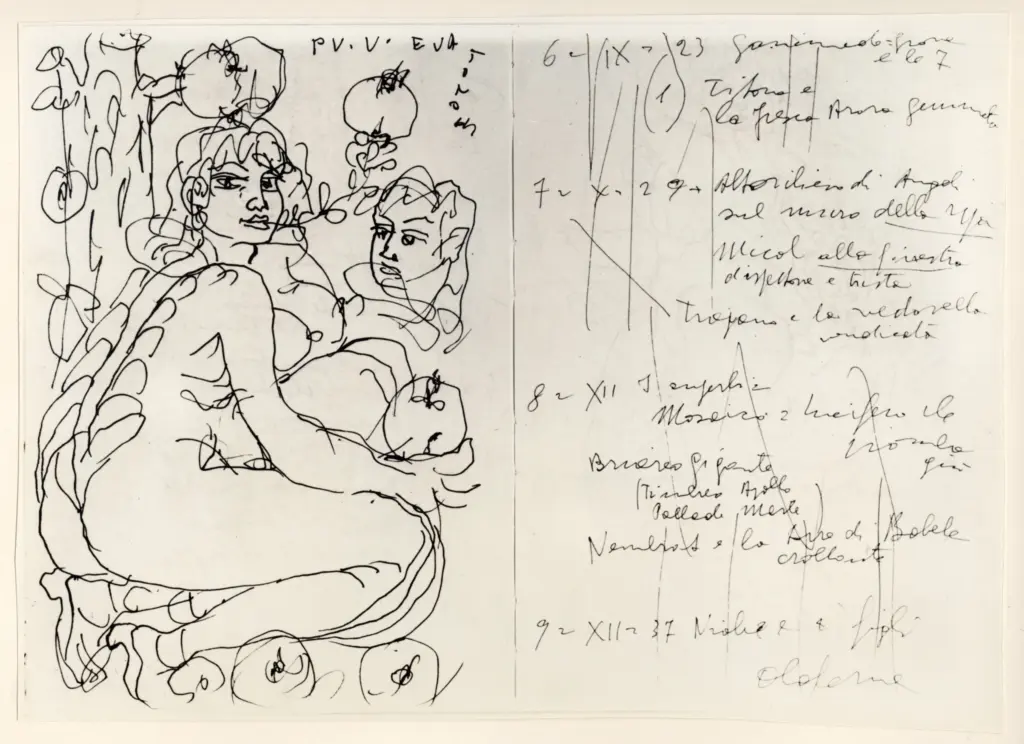 PV. V. EVA
6 = IX = 23 Ganimede
e le 7
(1) Titone e
la fresca
7 = X = 29 = Altorilievo di Angeli
sul muro della
Micol alla finestra
dispettosa e trista
Trajano e la vedovella
vendicata
8 = XII
Mosaico = Lucifero che
piomba
giù
Briareo Gigante
(Timbreo Apollo
Pallade Marte
Nembrot e la di Babele
crollante
9 = XII = 37 Niobe e i figli
Oloferne